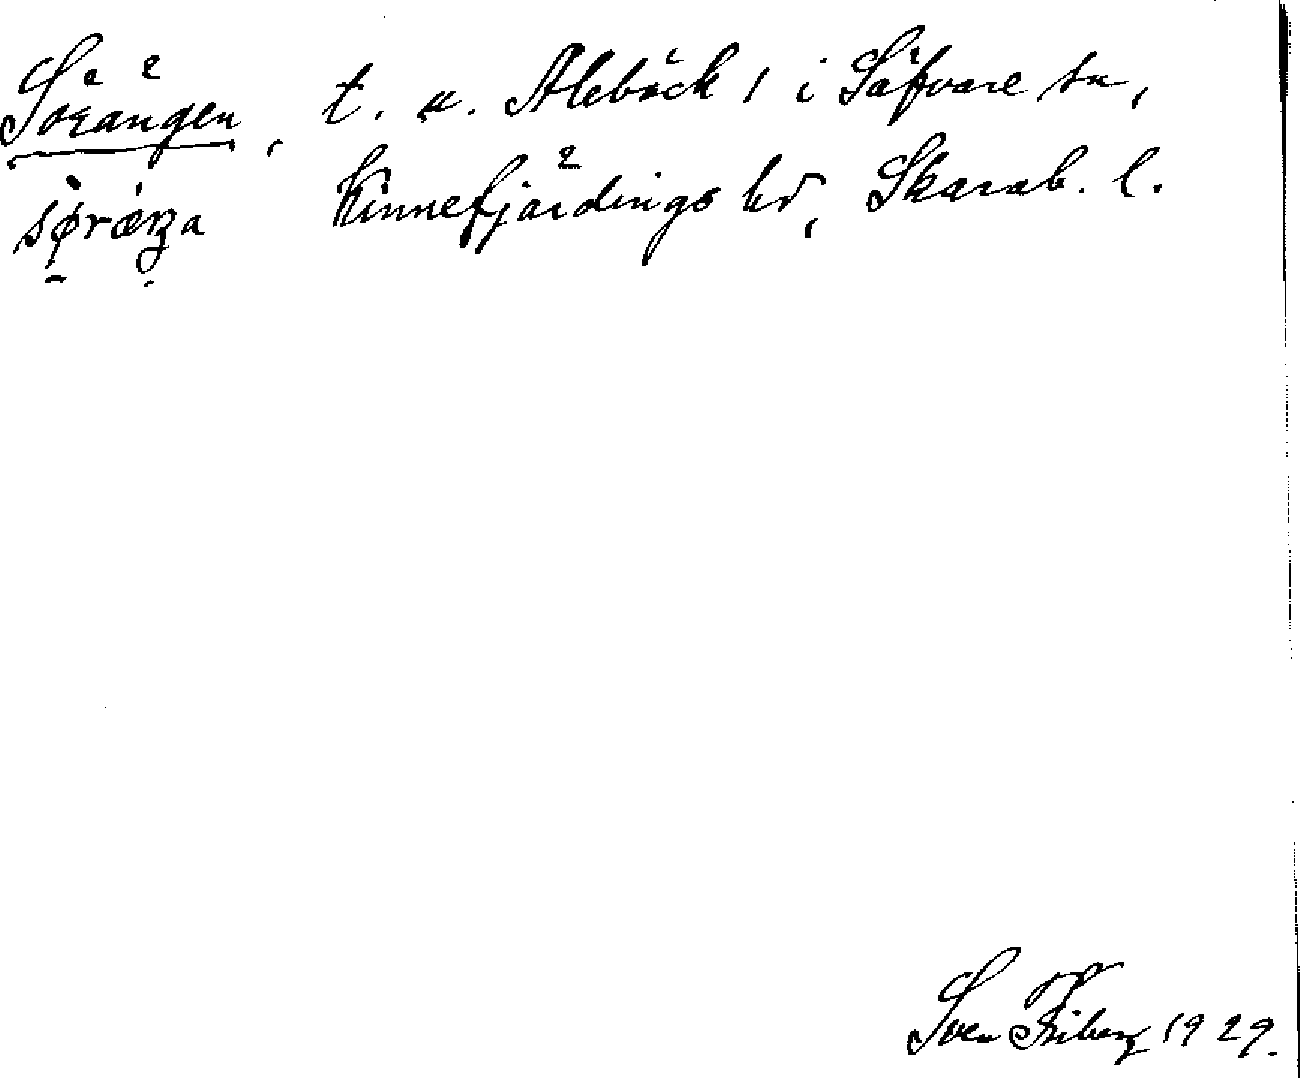 Sörängen, t. u. Alebäck 1 i Säfvare sn,
Kinnefjärdings hd, Skarab. l.
sø̀rǽŋa
Sven Friberg 1929.